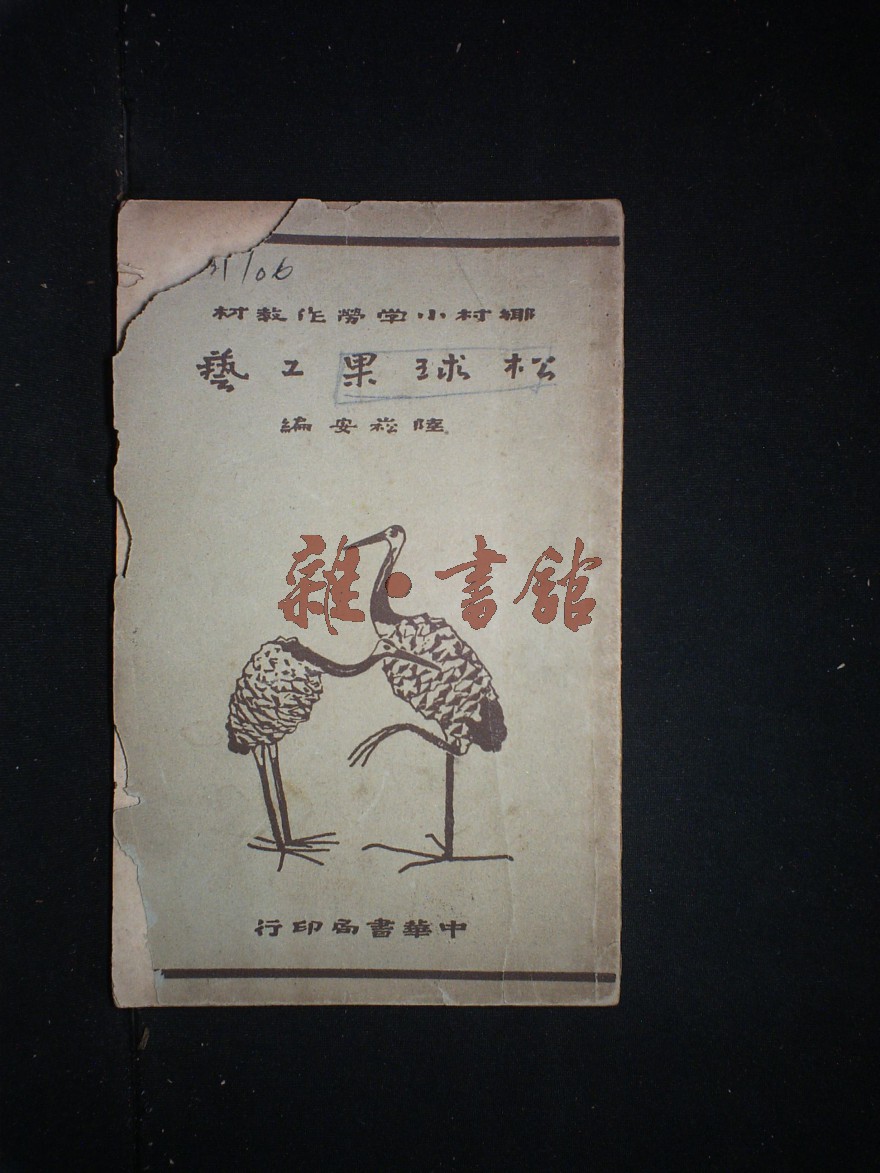 鄉村小學勞作教材
松球果工藝
陸崧安編
雜·書館
中華書局印行